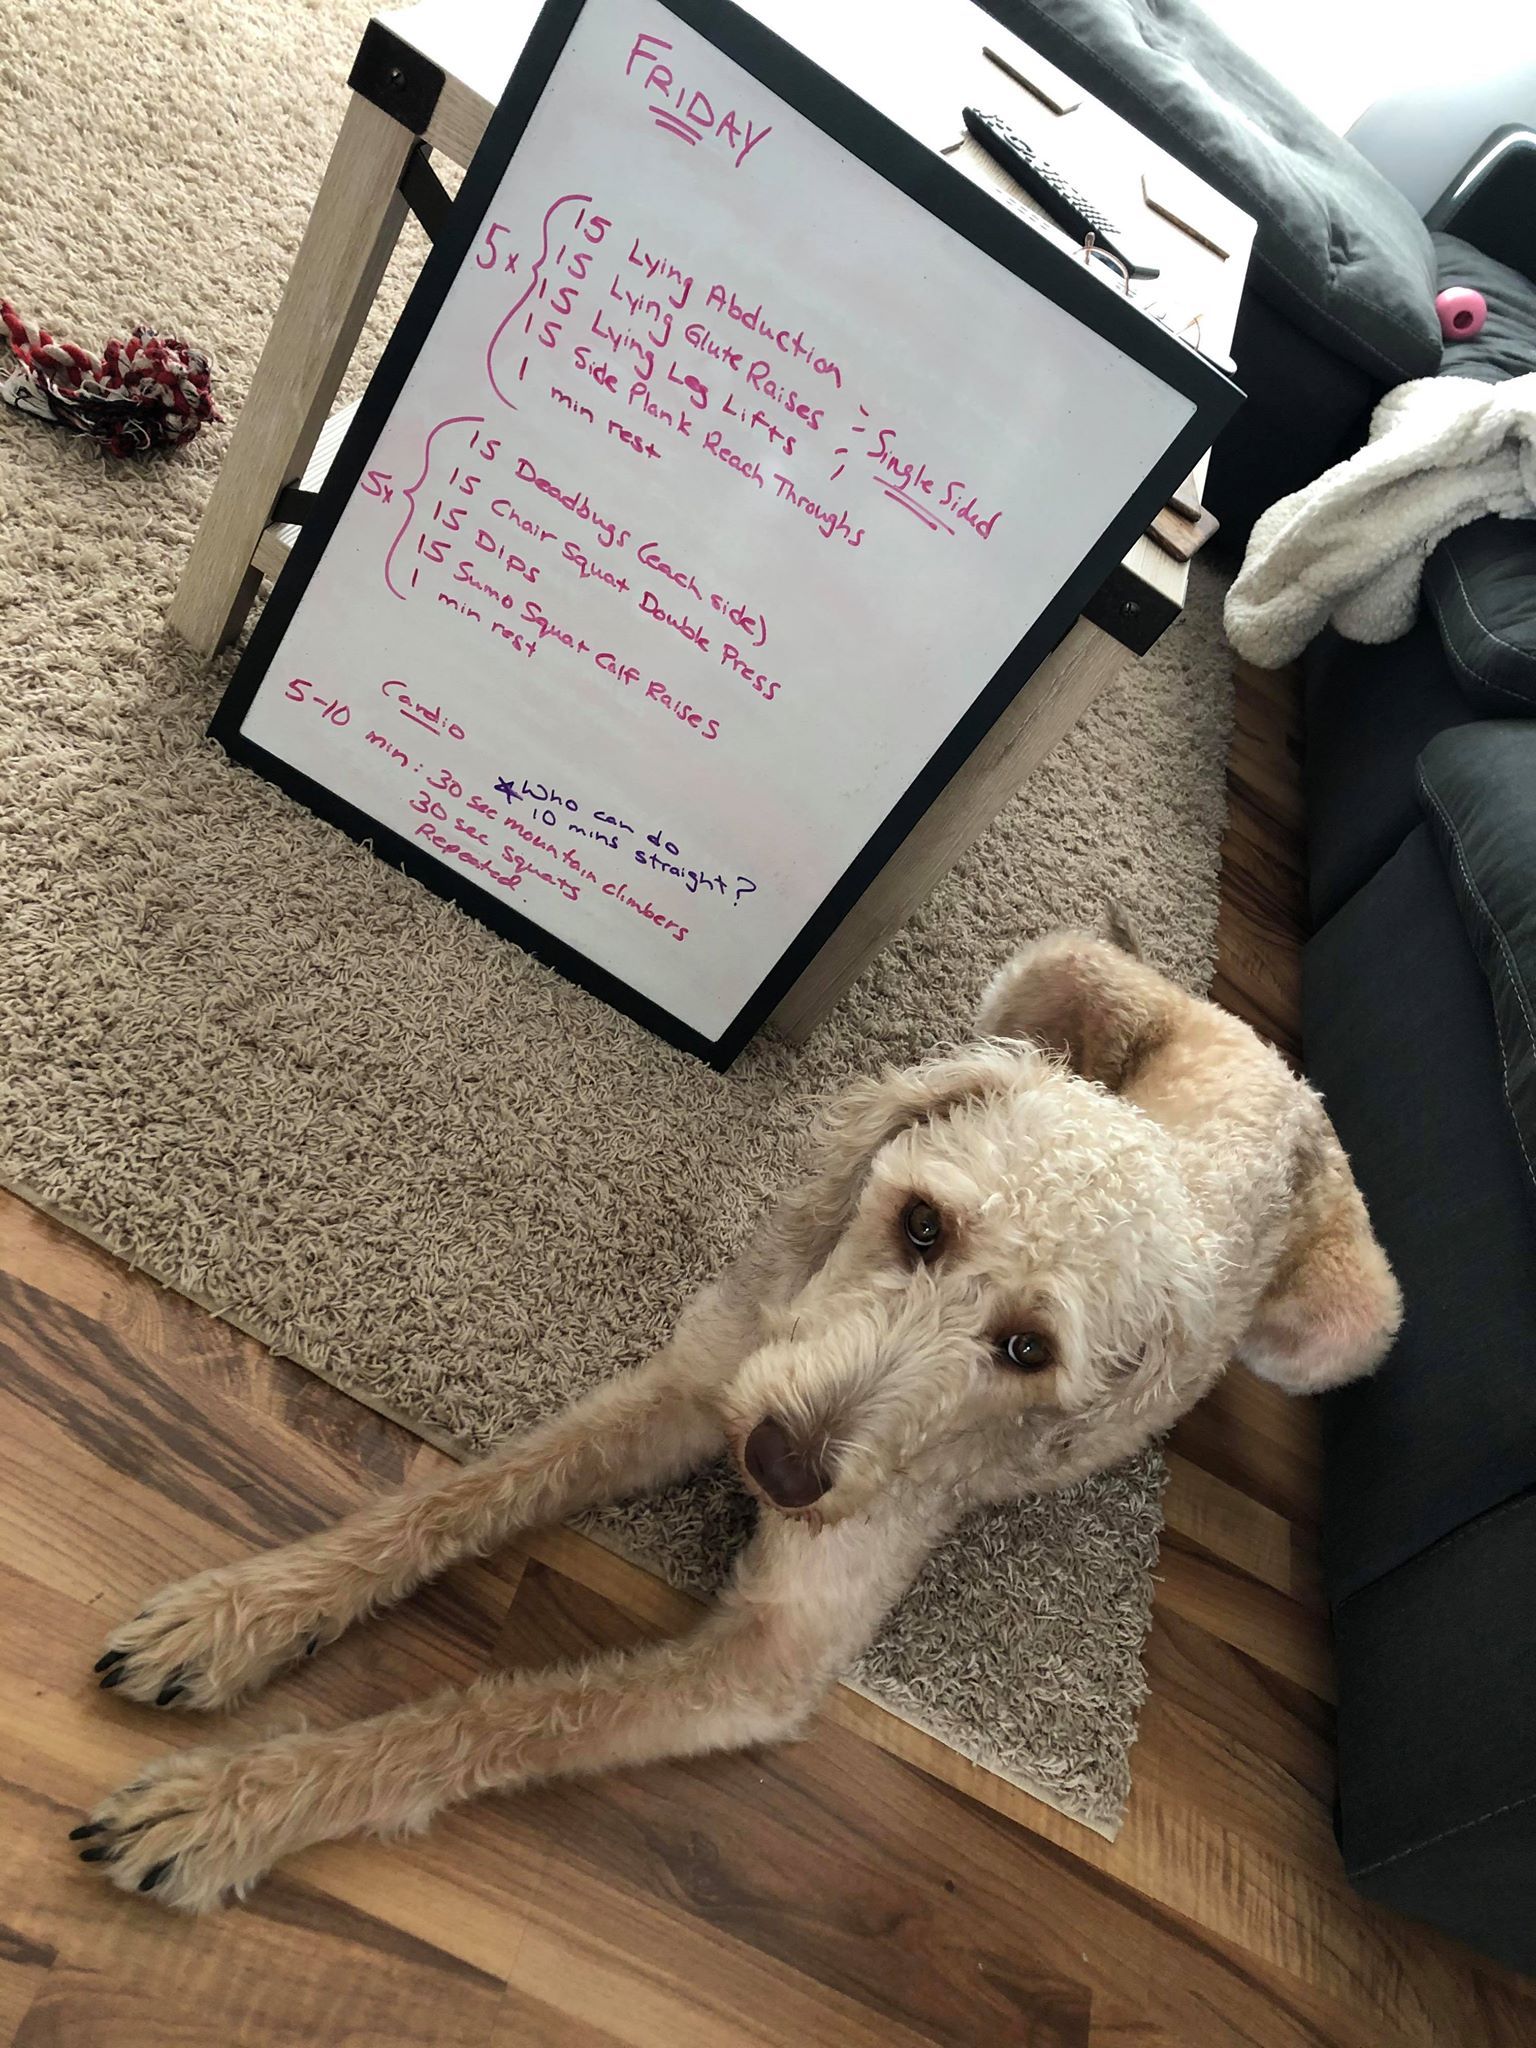 FRIDAY
5x
15 Lying Abduction
15 Lying Glute Raises
15 Lying Leg Lifts
Single Sided
15 Side Plank Reach Throughs
1 min rest
5x
15 Deadbugs (each side)
15 Chair Squat Double Press
15 Dips
15 Sumo Squat Calf Raises
1 min rest
Cardio
*Who can do
10 mins straight?
5-10 min: 30 sec mountain climbers
30 sec squats
Repeated